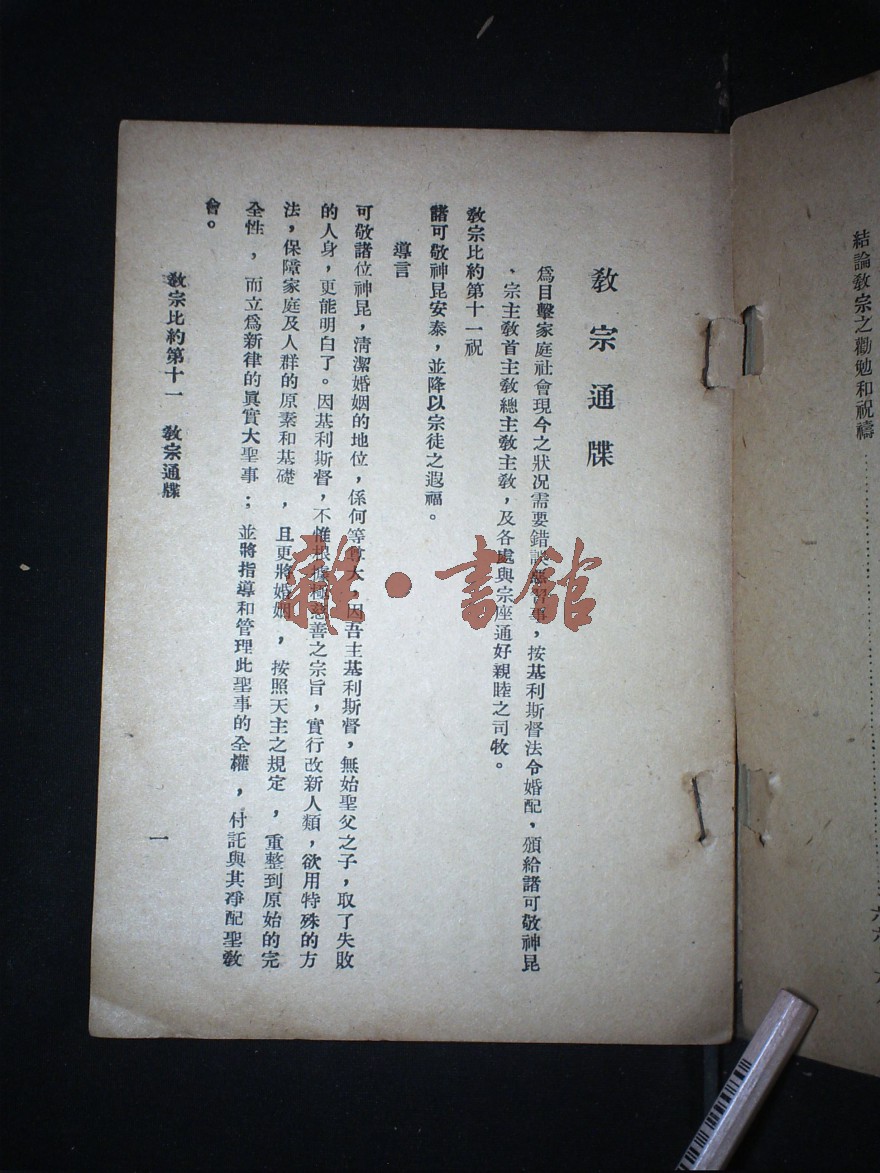 教宗通牒
為目擊家庭社會現今之狀況需要錯誤惡習事，按基利斯督法令婚配，頒給諸可敬神昆
、宗主教首主教總主教主教，及各處與宗座通好親睦之司牧。
教宗比約第十一祝
諸可敬神昆安泰，並降以宗徒之遐福。
導言
可敬諸位神昆，清潔婚姻的地位，係何等尊大，因吾主基利斯督，無始聖父之子，取了失敗
的人身，更能明白了。因基利斯督，不惟根據極慈善之宗旨，實行改新人類，欲用特殊的方
法，保障家庭及人群的原素和基礎，且更將婚姻，按照天主之規定，重整到原始的完
全性，而立為新律的眞實大聖事；並將指導和管理此聖事的全權，付託與其凈配聖教
會。
教宗比約第十一　教宗通牒
一
結論教宗之勸勉和祝禱
雜·書館